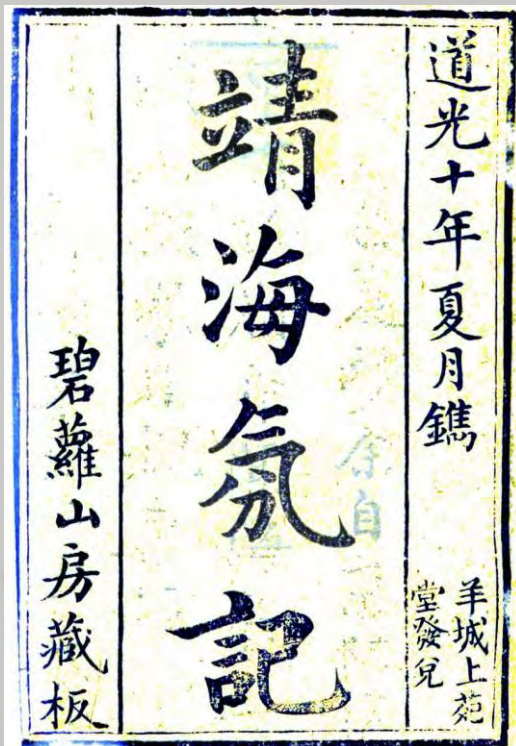 道光十年夏月鐫
羊城上苑
堂發兌
靖海氛記
碧蘿山房藏板